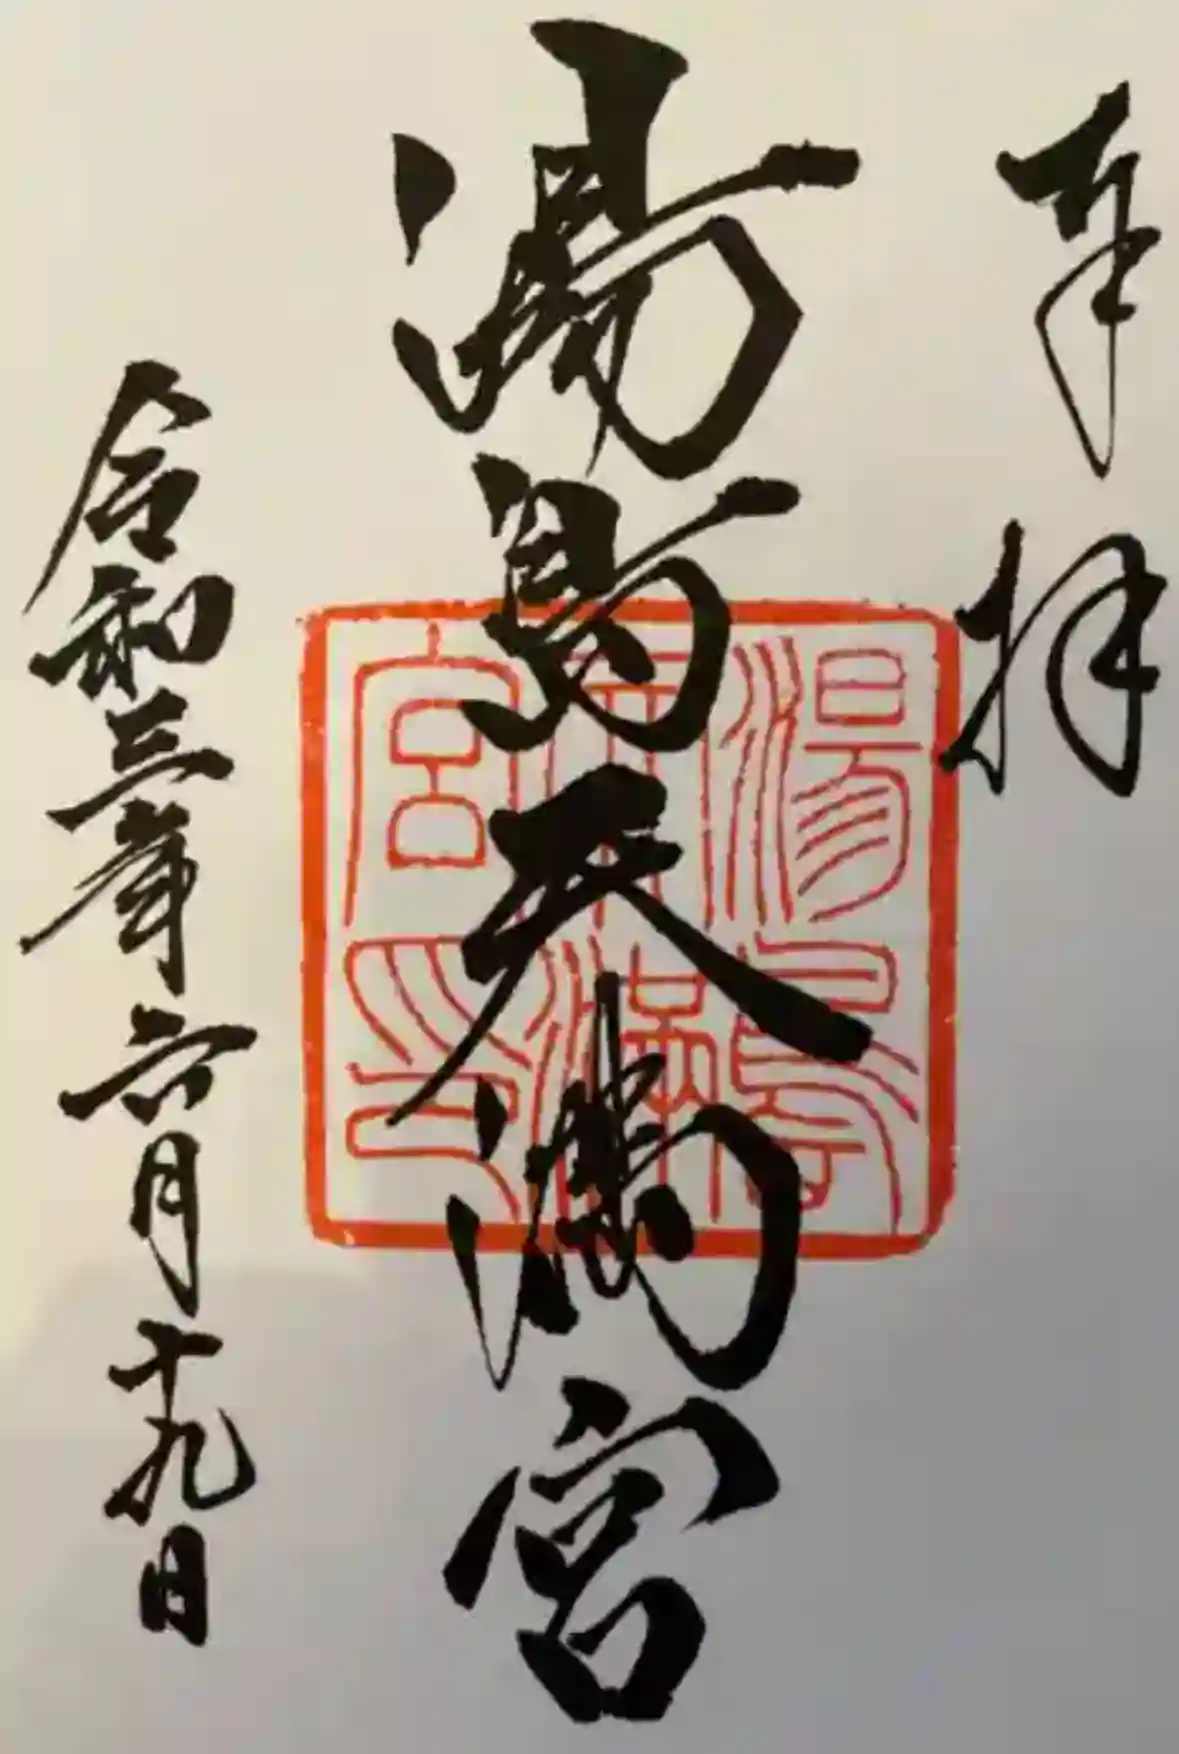 奉拝
湯島天満宮
湯島
天満
宮印
令和三年六月十九日